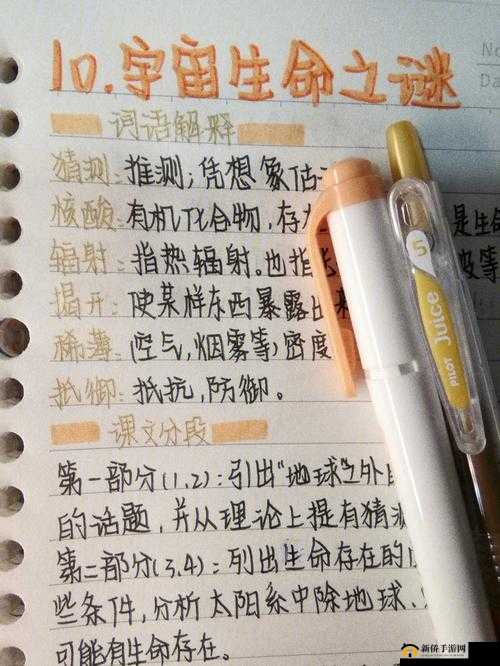 10.宇宙生命之谜
词语解释
猜测:推测;凭想象估
核酸:有机化合物,存 是生命
辐射:指热辐射。也指 波等
揭开:使某样东西暴露出来
稀薄:(空气,烟雾等)密度
抵御:抵抗,防御。
课文分段
第一部分(1,2):引出"地球之外
的话题,并从理论上提有猜测
第二部分(3,4):列出生命存在的
些条件,分析太阳系中除地球、
可能有生命存在。
5
Juice
PILOT
新侨手游网